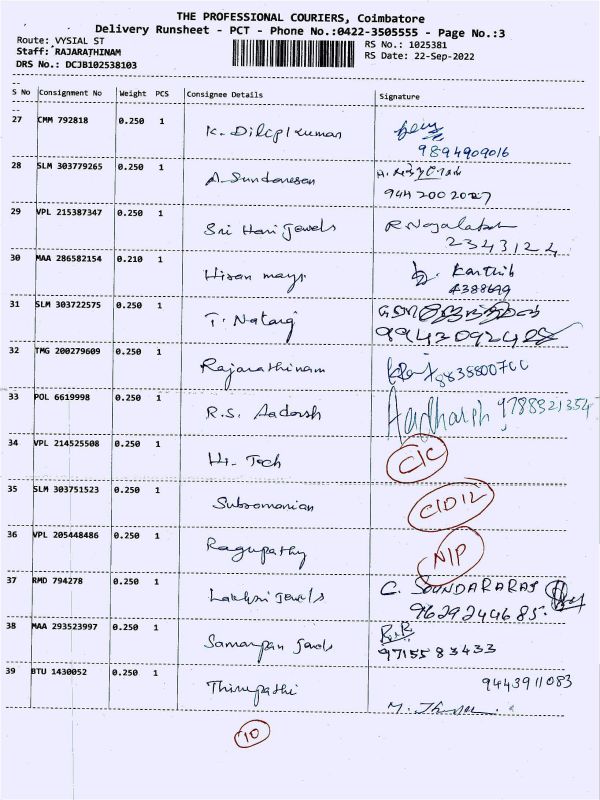 THE PROFESSIONAL COURIERS, Coimbatore
Delivery Runsheet - PCT - Phone No.:0422-3505555 - Page No.:3
Route: VYSIAL ST
RS No.: 1025381
Staff: RAJARATHINAM
RS Date: 22-Sep-2022
DRS No.: DCJB102538103
S No Consignment No Weight PCS Consignee Details Signature
27 CMM 792818 0.250 1
K. Dilipkumar
9894909016
28 SLM 303779265 0.250 1
A. Sundaresan
944 200 2027
29 VPL 215387347 0.250 1
Sri Hari Jewels R. Nagalaksh
2343124
30 MAA 286582154 0.210 1
Hiran mayi Karthik
4388699
31 SLM 303722575 0.250 1
T. Nataraj
32 TMG 200279609 0.250 1
Rajarathinam
33 POL 6619998 0.250 1
R.S. Aadarsh Aadharsh 9788921354
34 VPL 214525508 0.250 1
Hi-Tech C/C
35 SLM 303751523 0.250 1
Subramanian C/D 12
36 VPL 205448486 0.250 1
Ragupathy N/P
37 RMD 794278 0.250 1
Lakshmi Jewels C. SOUNDARARAJ
9629244685
38 MAA 293523997 0.250 1
Samarpan Jewels 9715583433
39 BTU 1430052 0.250 1
Thirupathi 9443911083
10